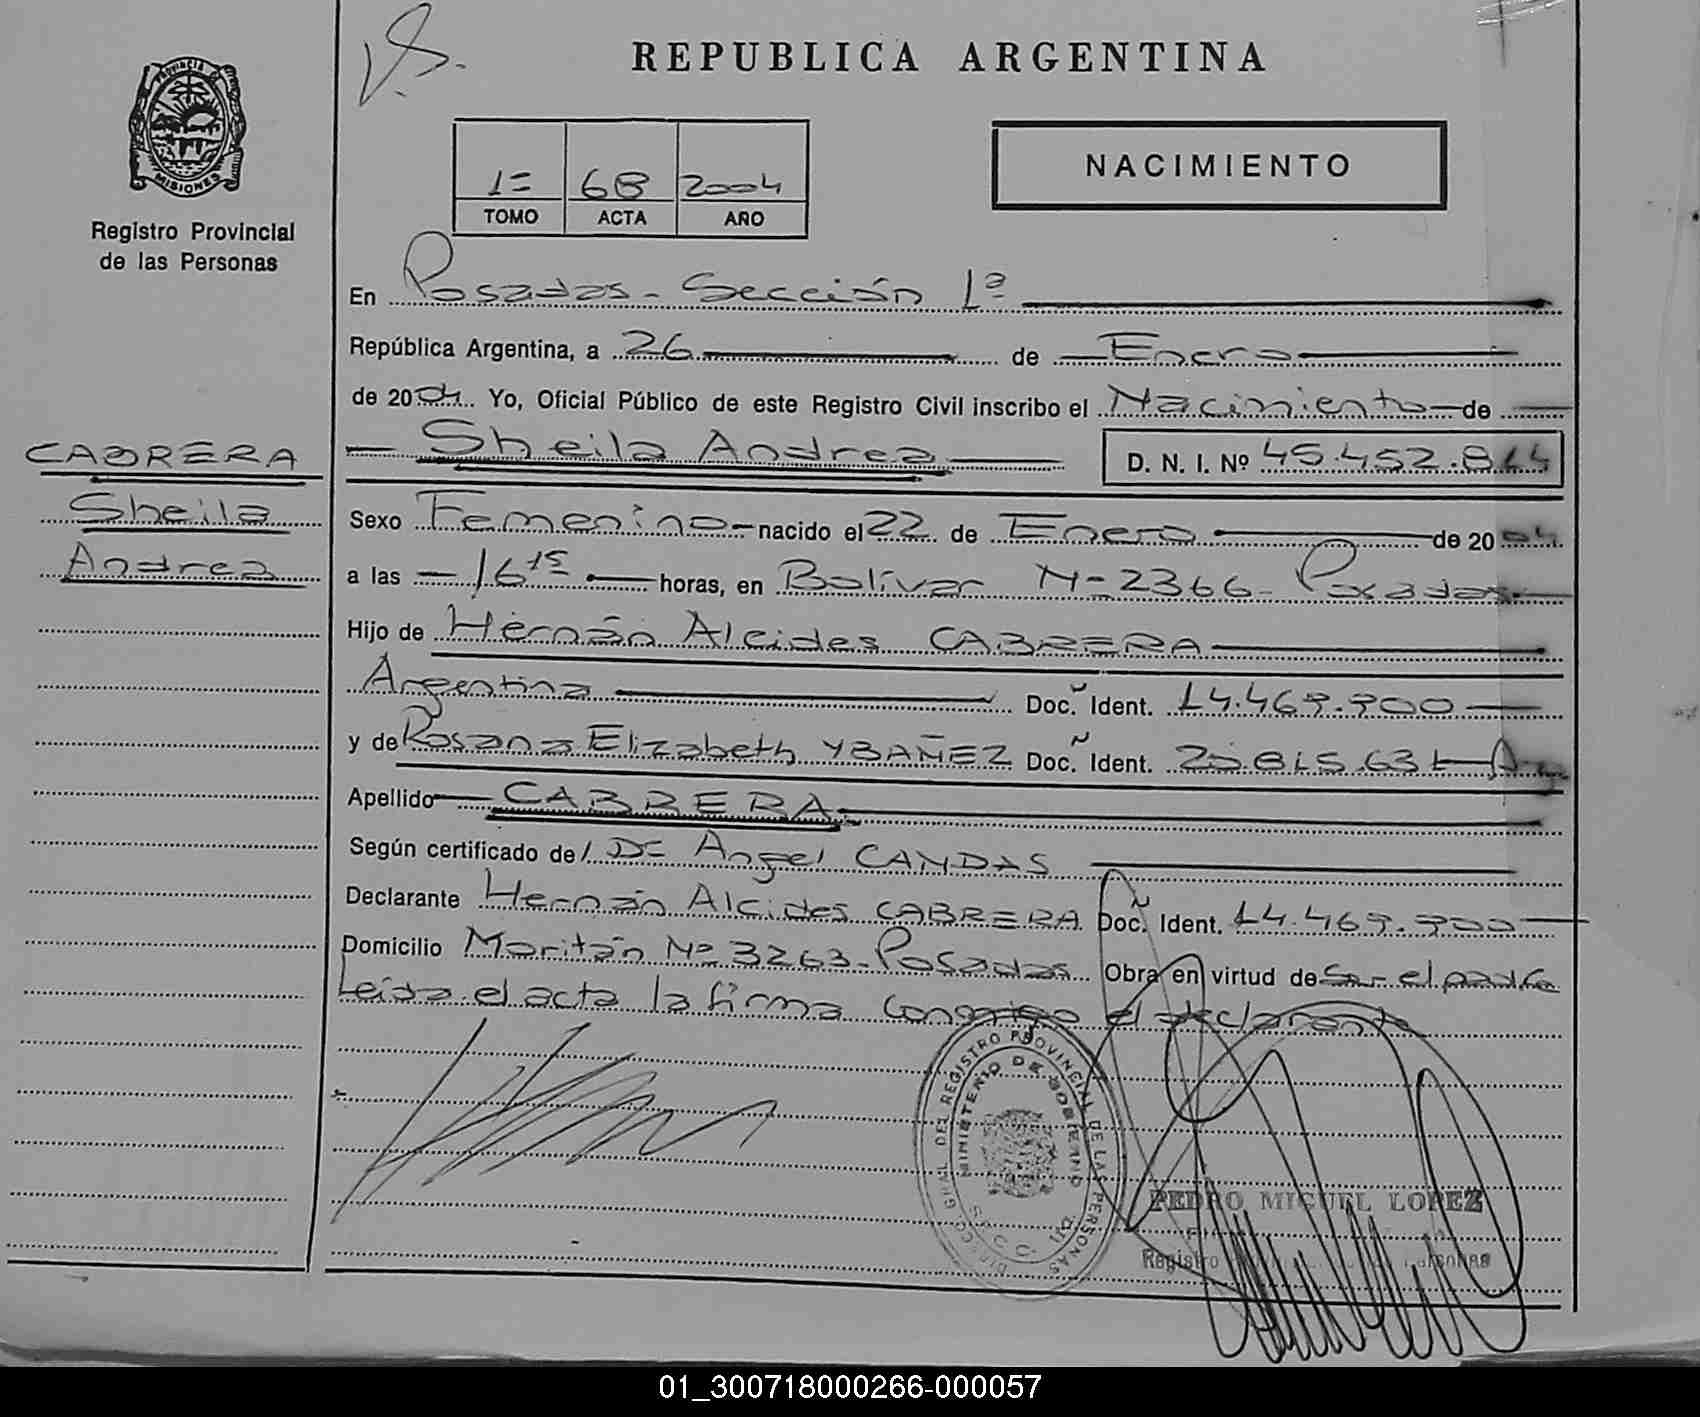 REPUBLICA ARGENTINA
PROVINCIA DE
MISIONES
Registro Provincial
de las Personas
NACIMIENTO
1= 68 2004
TOMO ACTA AÑO
En Posadas - Sección 1ª
República Argentina, a 26 de Enero
de 2004 Yo, Oficial Público de este Registro Civil inscribo el Nacimiento de
Sheila Andrea D. N. I. Nº 45.452.864
CABRERA
Sheila
Andrea
Sexo Femenino nacido el 22 de Enero de 2004
a las 16 15 horas, en Bolívar Nº 2366 - Posadas
Hijo de Hernán Alcides CABRERA
Argentina Doc. Ident. 14.469.900
y de Rosana Elizabeth YBAÑEZ Doc. Ident. 25.815.631
Apellido CABRERA
Según certificado de/ Dr Angel CANDAS
Declarante Hernán Alcides CABRERA Doc. Ident. 14.469.900
Domicilio Moritán Nº 3263 - Posadas Obra en virtud de Ser el padre
Leída el acta la firma conmigo el declarante
DIRECC. GRAL. DEL REGISTRO PROVINCIAL DE LAS PERSONAS
MINISTERIO DE GOBIERNO
PEDRO MIGUEL LOPEZ
Registro
01_300718000266-000057